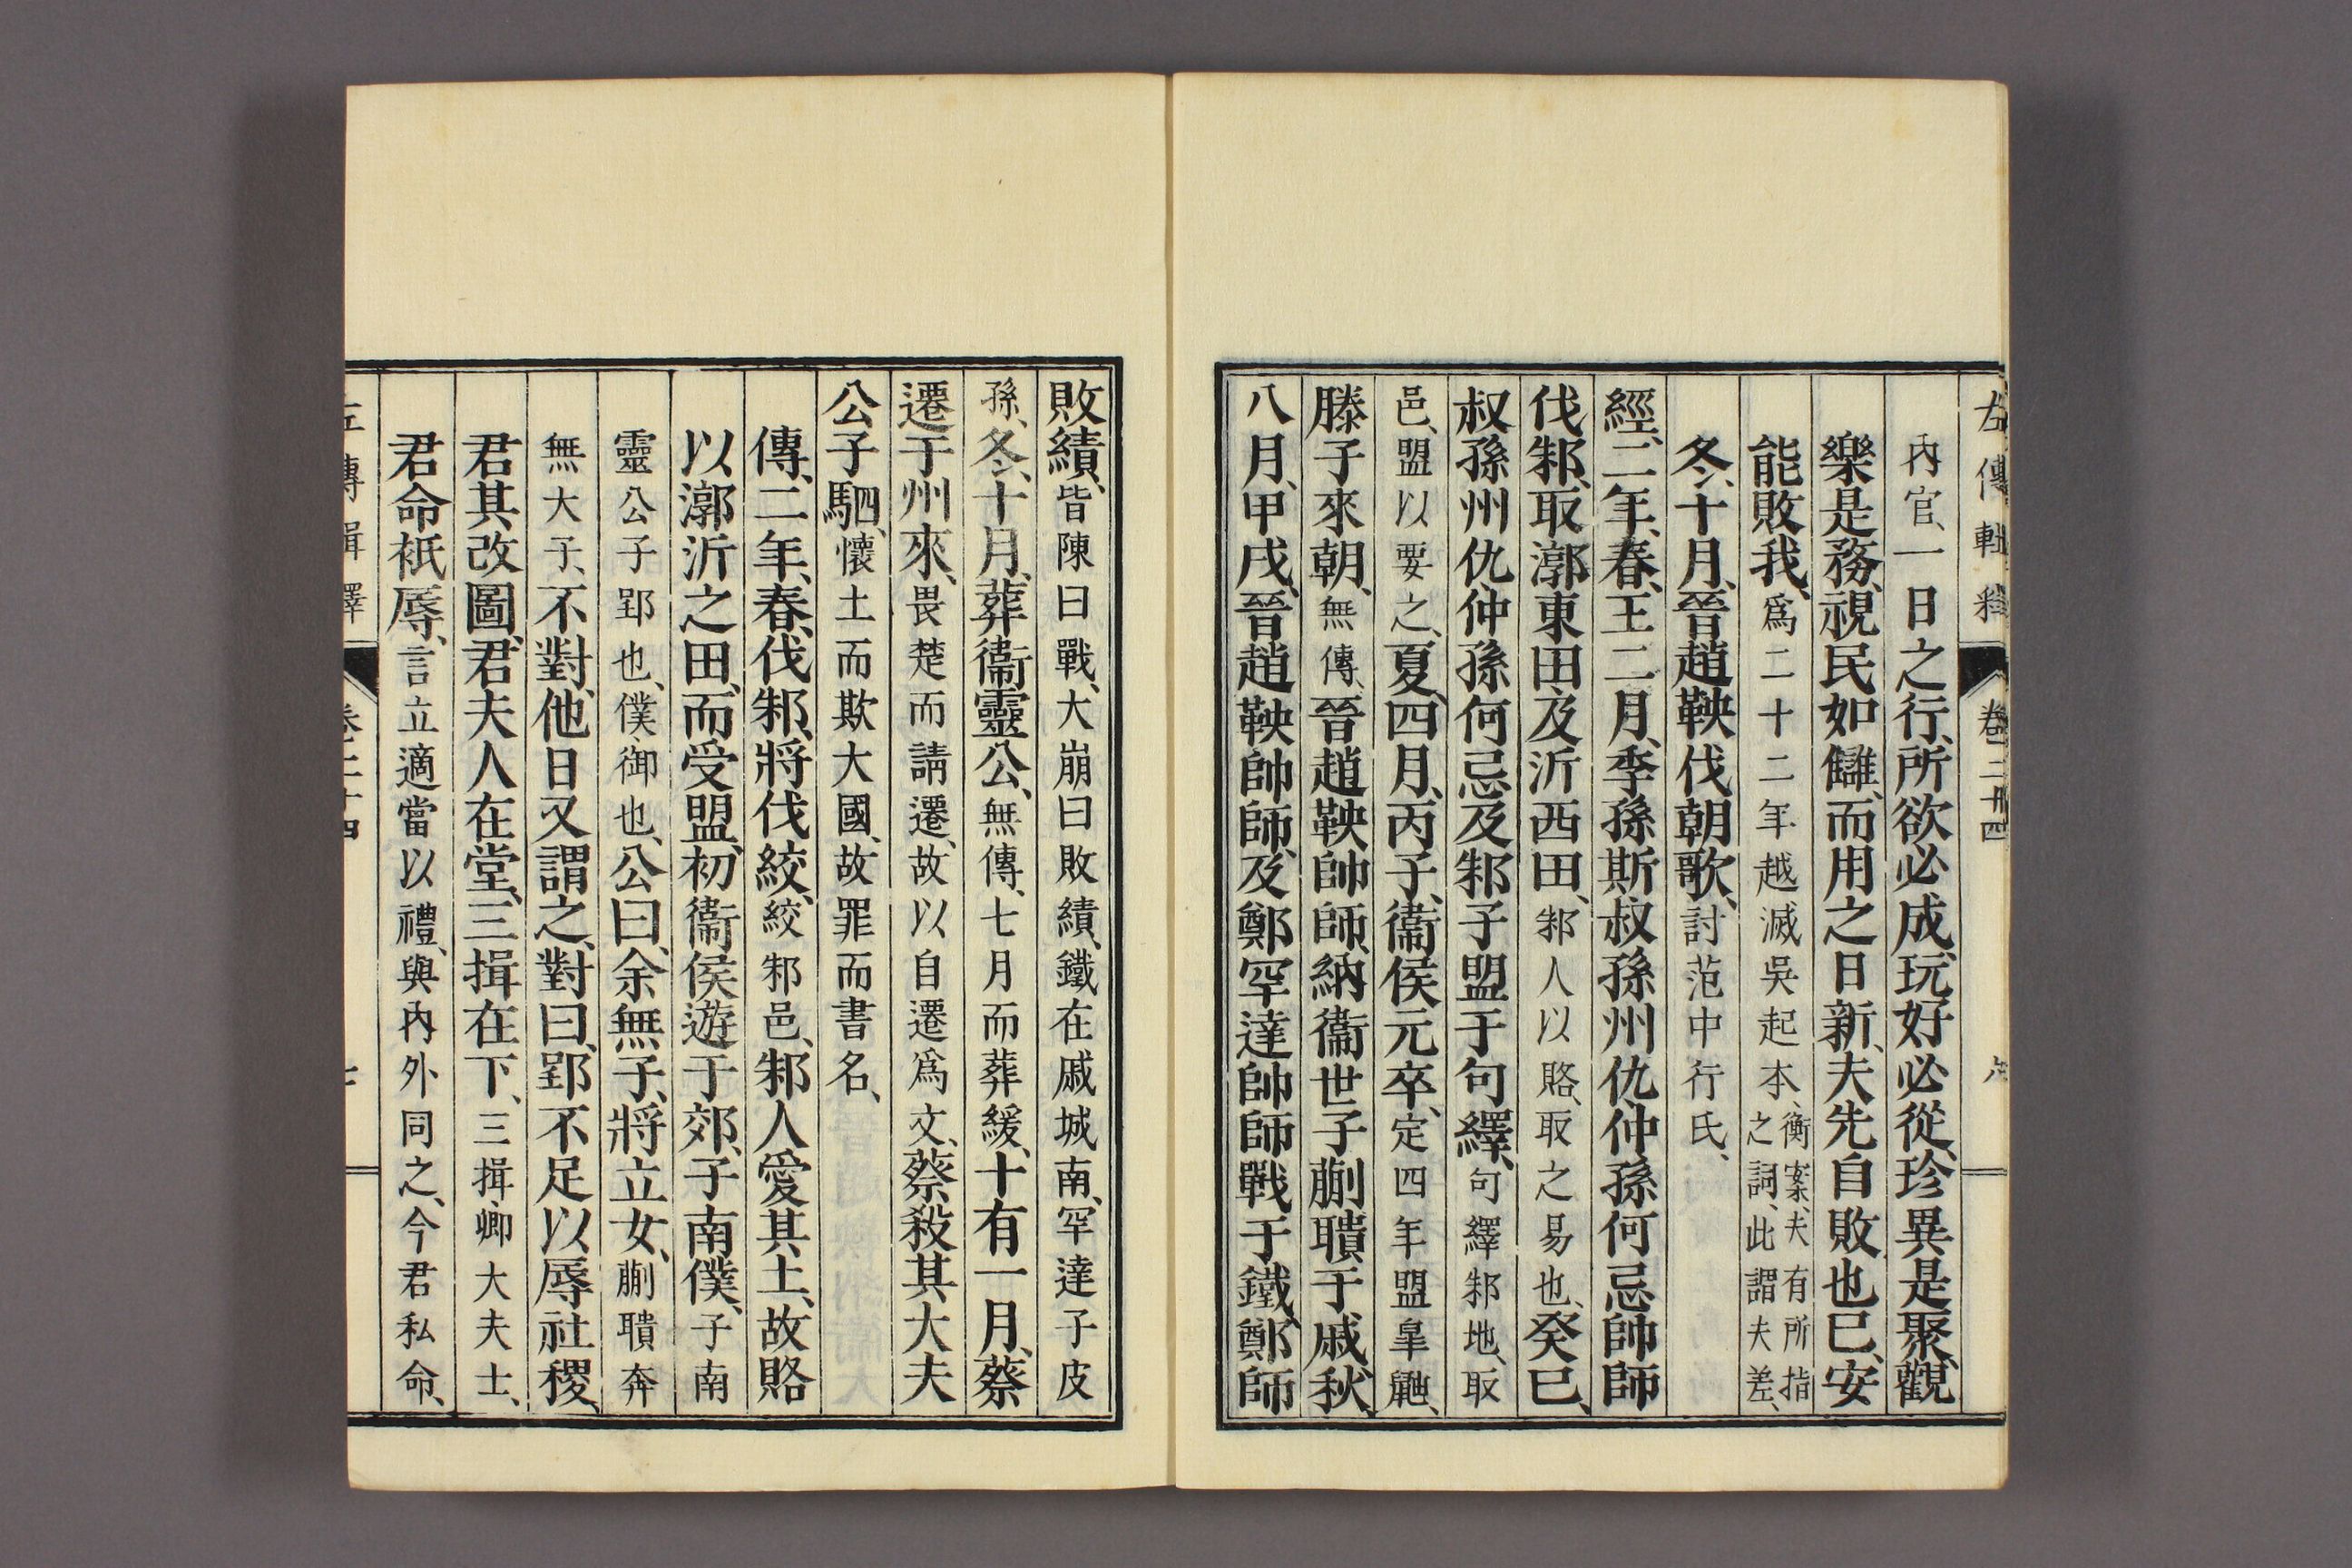 左傳輯釋 卷二十四 六
內官、一日之行、所欲必成、玩好必從、珍異是聚、觀
樂是務、視民如讎、而用之日新、夫先自敗也已、安
能敗我、爲二十二年越滅吳起本、衡案、夫有所指之詞、此謂夫差、
冬、十月、晉趙鞅伐朝歌、討范中行氏、
經、二年、春、王二月、季孫斯叔孫州仇仲孫何忌帥師
伐邾、取漷東田及沂西田、邾人以賂、取之易也、癸巳、
叔孫州仇仲孫何忌及邾子盟于句繹、句繹邾地、取
邑、盟以要之、夏、四月、丙子、衞侯元卒、定四年盟皐鼬、
滕子來朝、無傳、晉趙鞅帥師、納衞世子蒯聵于戚、秋、
八月、甲戌、晉趙鞅帥師、及鄭罕達帥師戰于鐵、鄭師
敗績、皆陳曰戰、大崩曰敗績、鐵在戚城南、罕達子皮
孫、冬、十月、葬衞靈公、無傳、七月而葬緩、十有一月、蔡
遷于州來、畏楚而請遷、故以自遷爲文、蔡殺其大夫
公子駟、懷土而欺大國、故罪而書名、
傳、二年、春、伐邾、將伐絞、絞邾邑、邾人愛其土、故賂
以漷沂之田、而受盟、初衞侯遊于郊、子南僕、子南
靈公子郢也、僕、御也、公曰、余無子、將立女、蒯聵奔
無大子、不對、他日又謂之、對曰、郢不足以辱社稷、
君其改圖、君夫人在堂、三揖在下、三揖、卿大夫士、
君命祇辱、言立適當以禮、與內外同之、今君私命、
左傳輯釋 卷二十四 七